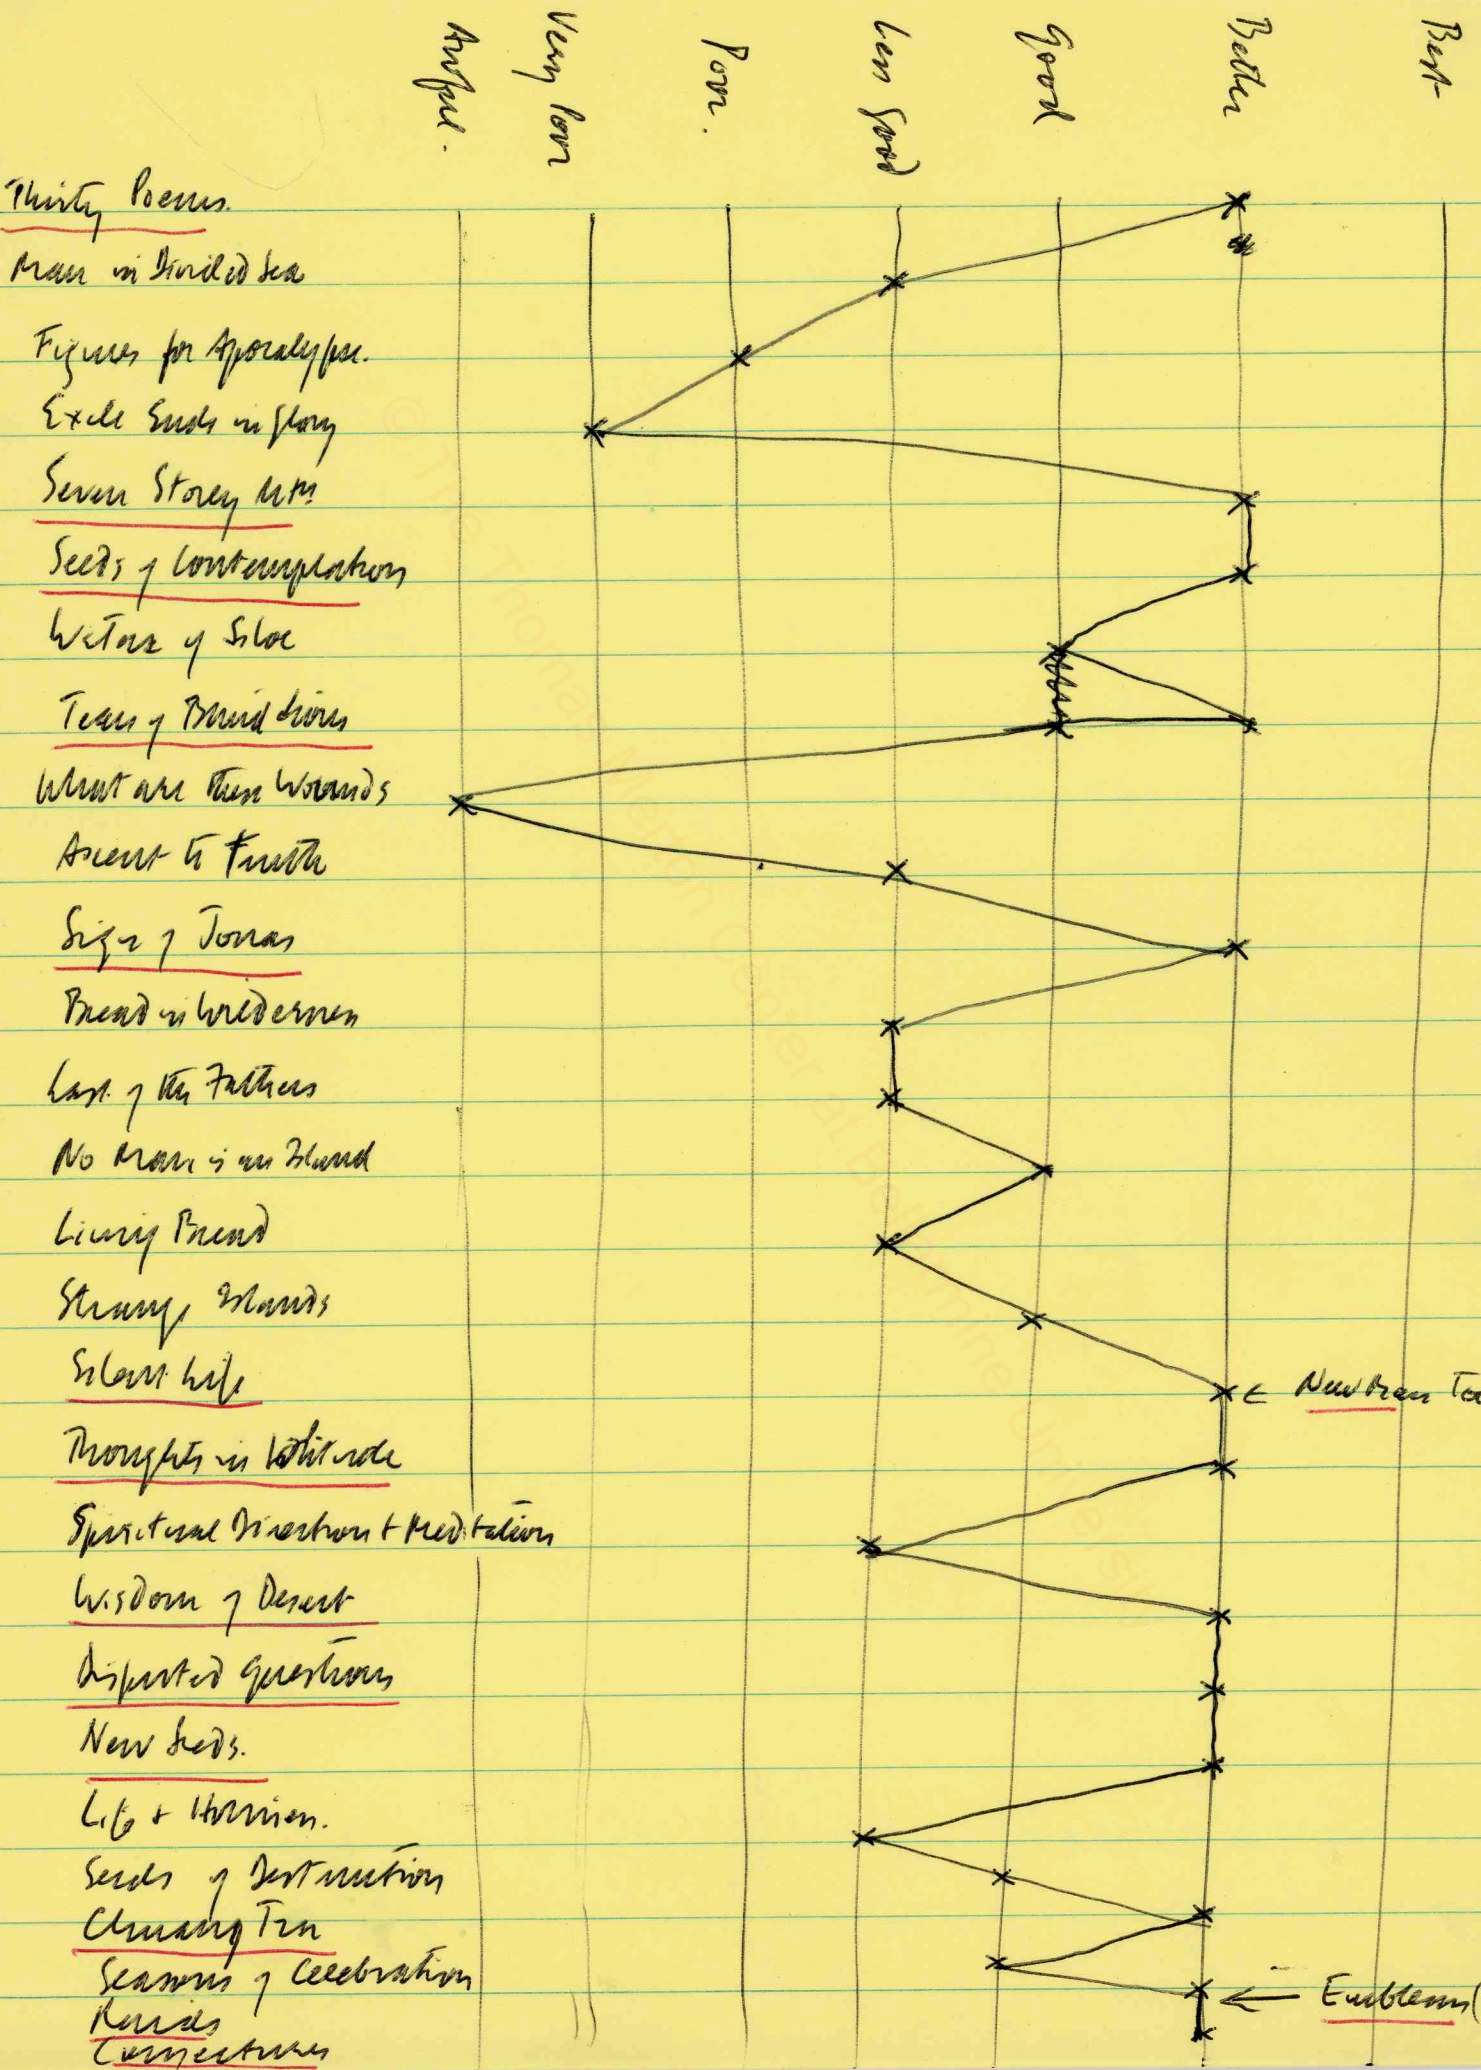 Awful.
Very Poor
Poor.
Less Good
Good
Better
Best
Thirty Poems.
Man in Divided Sea
Figures for Apocalypse.
Exile Ends in Glory
Seven Storey Mtn
Seeds of Contemplation
Waters of Siloe
Tears of Blind Lions
What are these Wounds
Ascent to Truth
Sign of Jonas
Bread in Wilderness
Last of the Fathers
No Man is an Island
Living Bread
Strange Islands
Silent Life
← New Man
Thoughts in Solitude
Spiritual Direction + Meditation
Wisdom of Desert
Disputed Questions
New Seeds.
Life + Holiness.
Seeds of Destruction
Chuang Tzu
Seasons of Celebration
Raids
← Emblems (
Conjectures
© The Thomas Merton Center at Bellarmine University